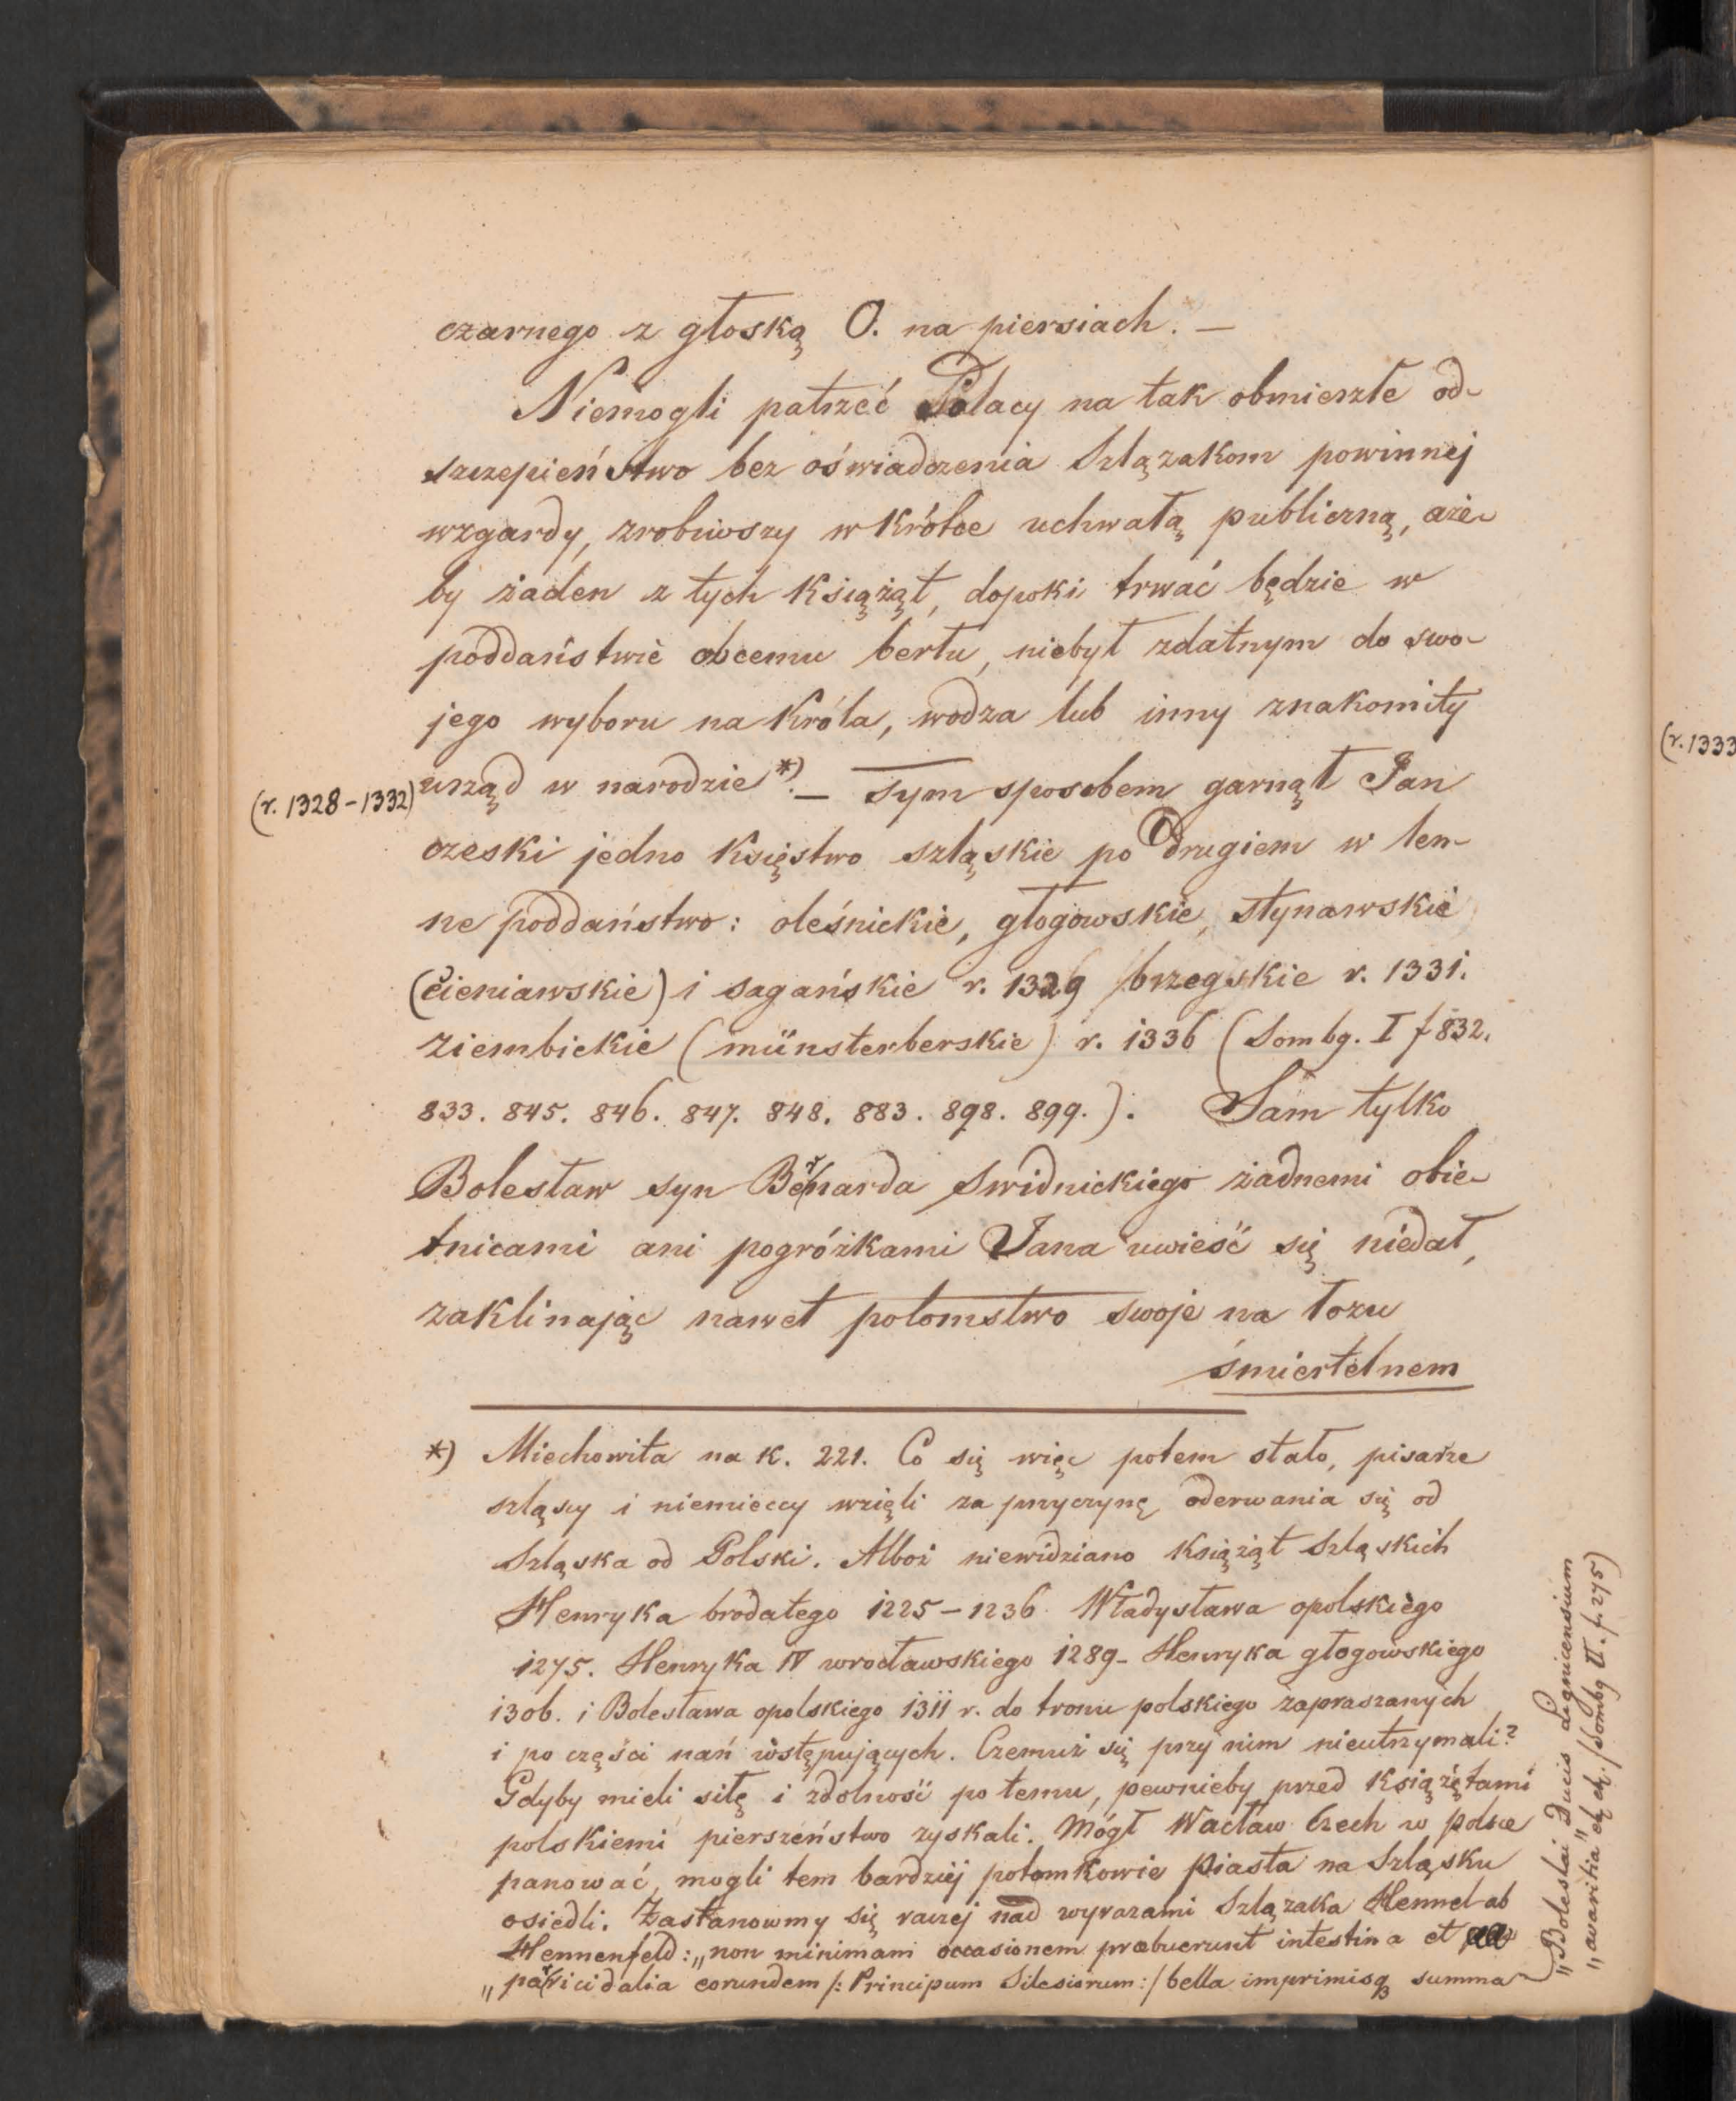 czarnego z głoską O. na piersiach. —
Niemogli patrzeć Polacy na tak obmierzłe od-
szczepieństwo bez oświadczenia Szlązakom powinnej
wzgardy, zrobiwszy wkrótce uchwałą publiczną, aże-
by żaden z tych Książąt, dopoki trwać będzie w
poddaństwie obcemu berłu, niebył zdatnym do swo-
jego wyboru na Króla, wodza lub inny znakomity
(r. 1328-1332) urząd w narodzie *). — Tym sposobem garnął Jan
czeski jedno Księstwo szląskie po drugiem w len-
ne poddaństwo: oleśnickie, głogowskie, stynawskie
(cieniawskie) i sagańskie r. 1329 brzegskie r. 1331.
ziembickie (münsterberskie) r. 1336 (Sombg. I f 832.
833. 845. 846. 847. 848. 883. 898. 899.). Sam tylko
Bolesław syn Bernarda Swidnickiego żadnemi obie-
tnicami ani pogróżkami Jana uwieść się niedał,
zaklinając nawet potomstwo swoje na łozu
śmiertelnem
*) Miechowita na K. 221. Co się więc potem stało, pisarze
szląscy i niemieccy wzięli za przyczynę oderwania się od
Szląska od Polski. Alboż niewidziano Książąt Szląskich
Henryka brodatego 1225-1236 Władysława opolskiego
1275. Henryka IV wrocławskiego 1289- Henryka głogowskiego
1306. i Bolesława opolskiego 1311 r. do tronu polskiego zapraszanych
i po części nań wstępujących. Czemuż się przy nim nieutrzymali?
Gdyby mieli siłę i zdolność po temu, pewnieby przed Książętami
polskiemi pierszeństwo zyskali. Mógł Wacław Czech w polsce
panować, mogli tem bardziej potomkowie Piasta na Szląsku
osiedli. Zastanowmy się raczej nad wyrazami Szlązaka Hennel ab
Hennenfeld: „non minimam occasionem præbuerunt intestina et
„parricidalia eorundem /: Principum Silesiorum :/ bella imprimisq3 summa
„Boleslai Ducis Lignicensium
„avaritia" (Sombg II. f. 275)
(r. 1333